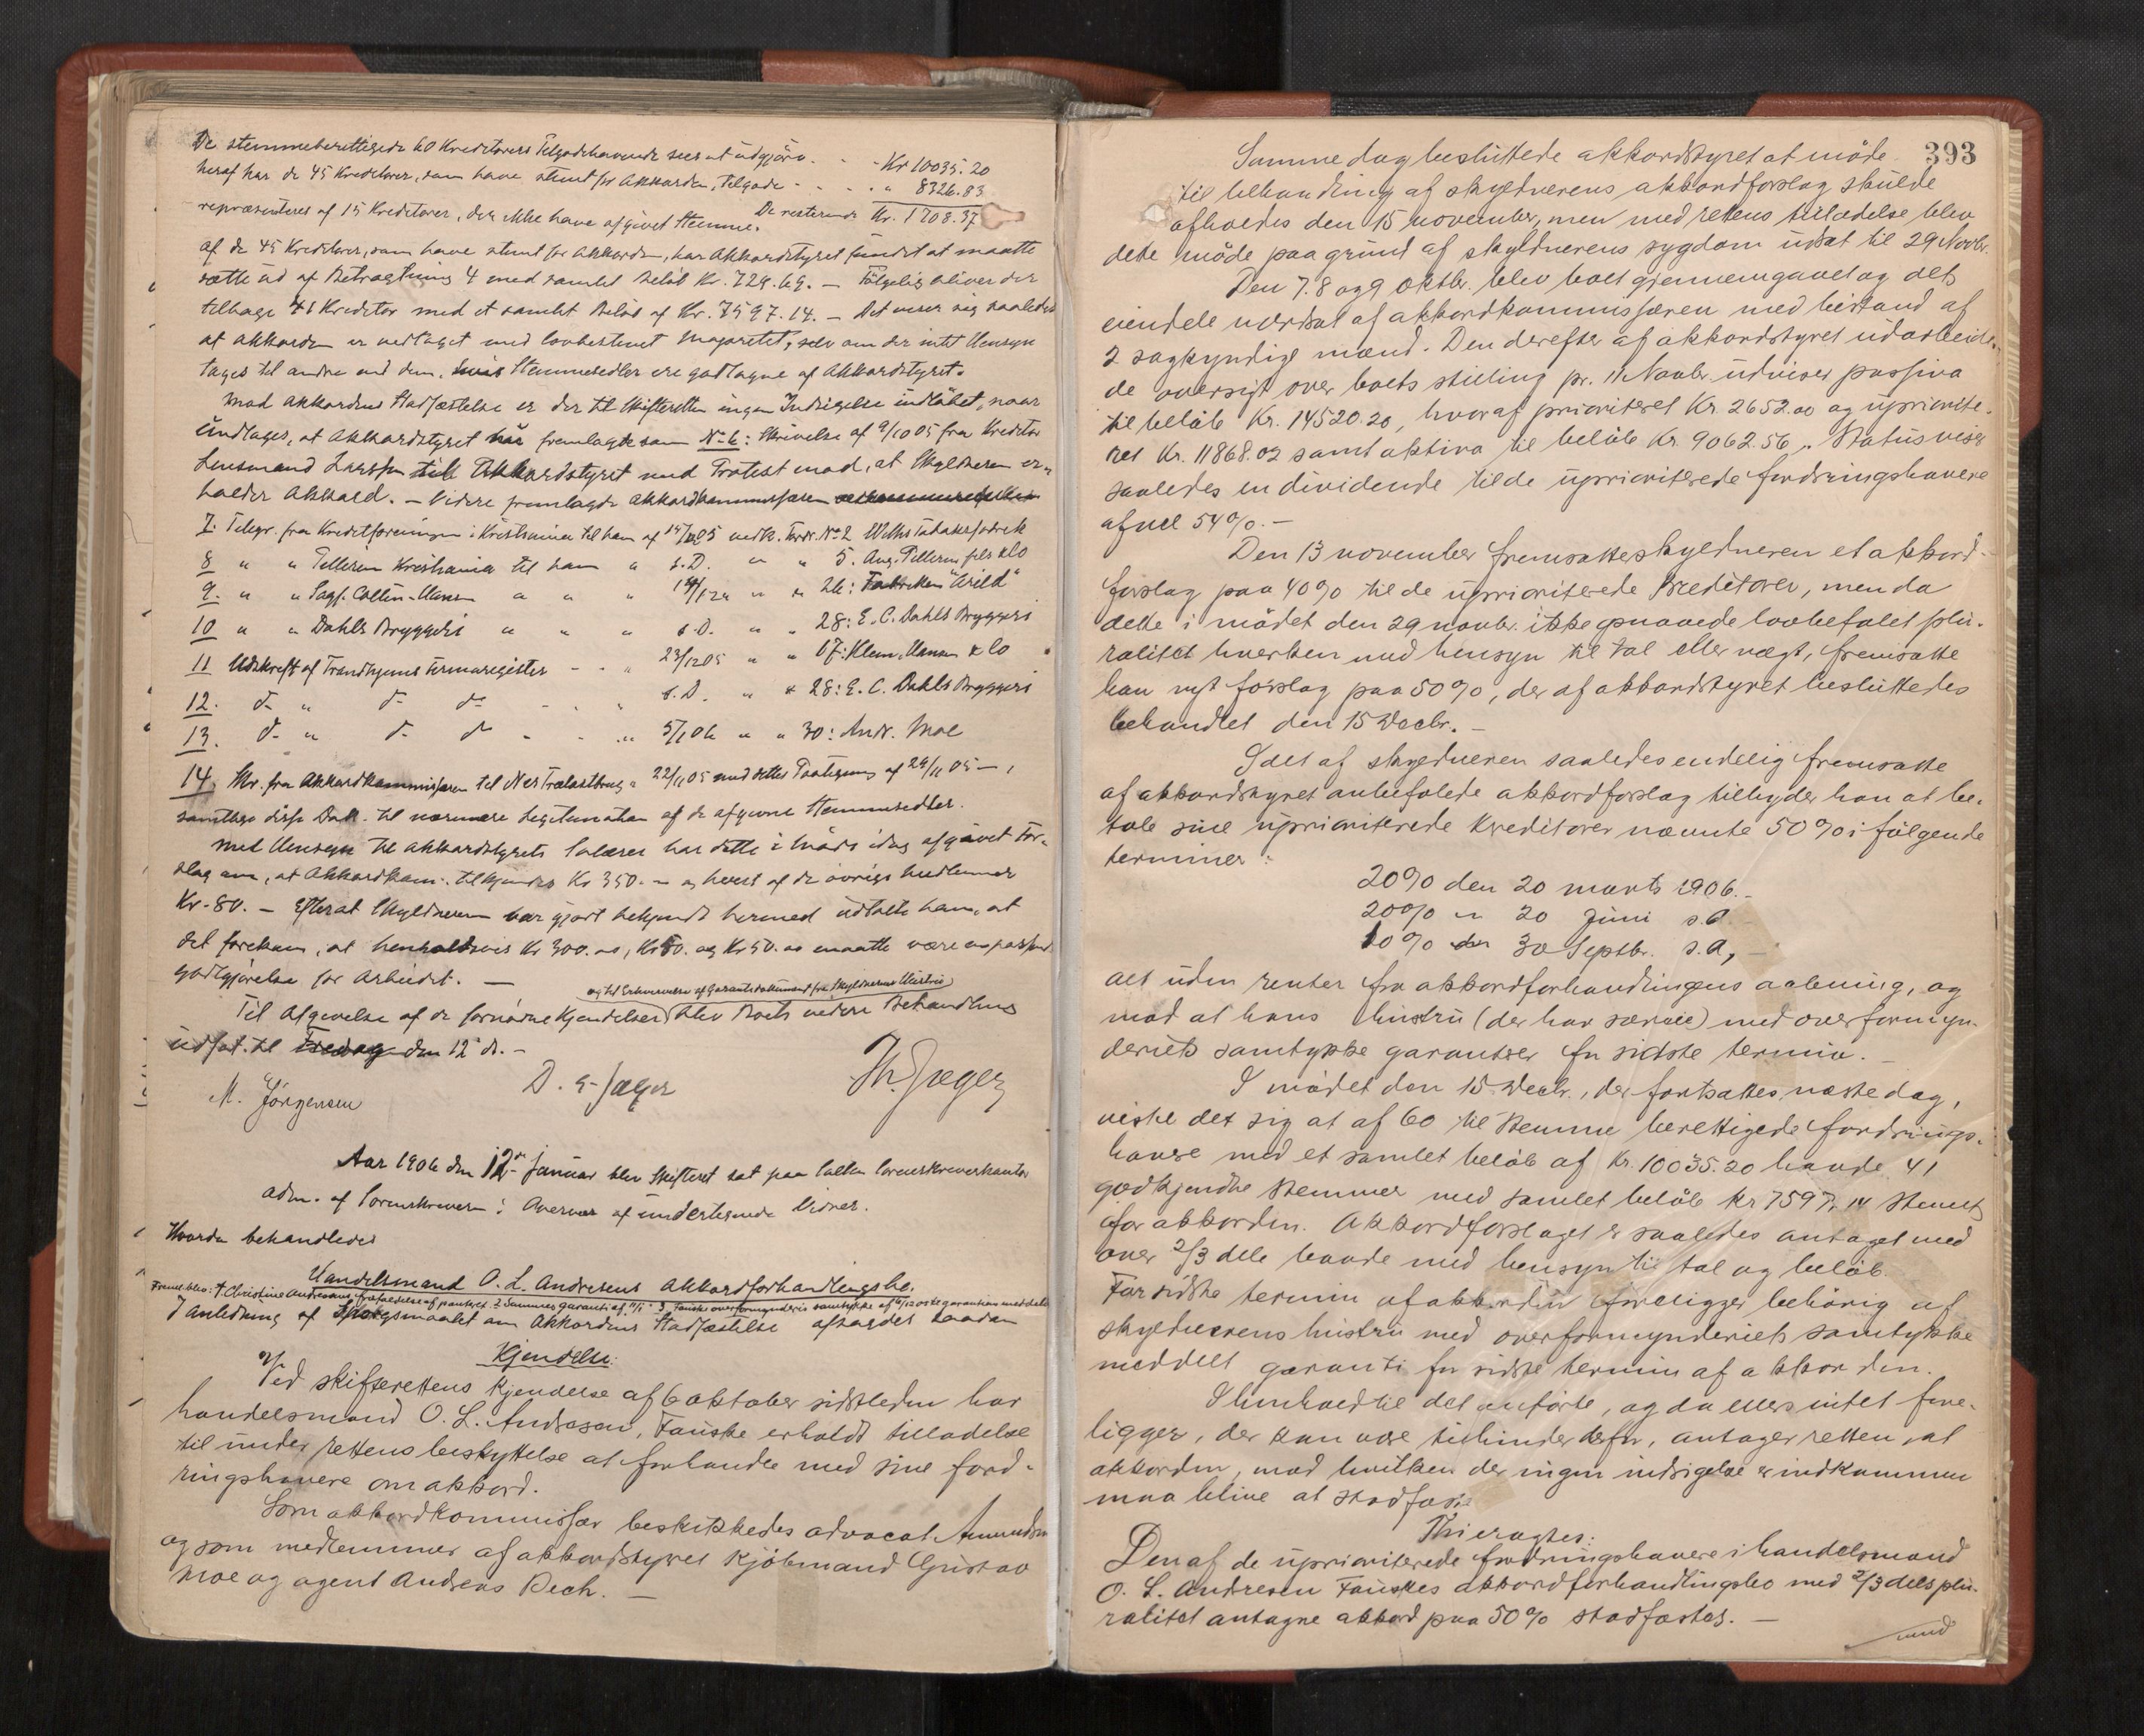 De stemmeberettigede 60 Kreditorers Tilgodehavende sees at udgjøre - - Kr 10035.20
heraf har de 45 Kreditorer, som have stemt for Akkorden, Tilgode - - - - " 8326.83
De resterende Kr. 1708.37
repræsenteres af 15 Kreditorer, der ikke have afgivet Stemme.
Af de 45 Kreditorer, som have stemt for Akkorden, har Akkordstyret fundet at maatte
sætte ud af Betragtning 4 med samlet Beløb Kr. 729.69. — Følgelig bliver der
tilbage 41 Kreditor med et samlet Beløb af Kr. 7597.14. — Det viser sig saaledes
at Akkorden er vedtaget med lovbestemt Majoritet, selv om der intet Hensyn
tages til andre end dem, hvis Stemmesedler ere godtagne af Akkordstyret.
Mod Akkordens Stadfæstelse er der til Skifteretten ingen Indsigelse indløbet, naar
undtages, at Akkordstyret har fremlagt som No 6: Skrivelse af 9/10 05 fra Kreditor
Lensmand Larssen til Akkordstyret med Protest mod, at Skyldneren er-
holder Akkord. — Videre fremlagde Akkordkommissæren
7. Telegr. fra Kreditforeningen i Kristiania til ham af 14/12 05 vedk. Fordr. No 2 Withs Tobaksfabrik
8 " " Tellersen Kristiania til ham " s.D. " " 5. Aug. Pellerin fils & Co
9. " " Sagf. Collin-Hansen " " " 14/12 " " 26: Fabrikken "Arild"
10 " " Dahls Bryggeri " " " s.D. " " 28: E. C. Dahls Bryggeri
11 Udskrift af Trondhjems Firmaregister - - " 23/12 05 " " 17: Klem, Hansen & Co
12. do " do do - - " s.D. " " 28: E. C. Dahls Bryggeri
13. do " do do - - " 5/1 06 " " 30: Andr. Moe
14. Skr. fra Akkordkommissæren til Nes Trælastbrug " 22/11 05 med dettes Paategning af 29/11 05 — ,
samtlige disse Dok. til nærmere Legitimation af de afgivne Stemmesedler.
Med Hensyn til Akkordstyrets Salærer har dette i Møde idag afgivet For-
slag om, at Akkordkom. tilkjendes Kr 350.- og hvert af de øvrige Medlemmer
Kr. 80. — Efterat Skyldneren var gjort bekjendt hermed udtalte han, at
det forekom, at henholdsvis Kr 300.00, Kr 50. og Kr 50.00 maatte være en passende
godtgjørelse for Arbeidet. —
og til Erhvervelse af Garantidokument fra Skyldnerens Hustru
Til Afgivelse af de fornødne Kjendelser blev Boets videre Behandling
udsat til Fredag den 12 ds. —
M. Jörgensen D. E. Jæger Th. Jæger
Aar 1906 den 12te Januar blev Skifteret sat paa Salten Sorenskriverkontor
adm. af Sorenskriveren i Overvær af undertegnede Vidner.
Hvorda behandledes
Handelsmand O. L. Andresens Akkordforhandlingsbo.
I Anledning af Spørgsmaalet om Akkordens Stadfæstelse afsagdes saadan
Kjendelse:
Ved skifterettens kjendelse af 6 oktober sidstleden har
handelsmand O. L. Andresen, Fauske erholdt tilladelse
til under rettens beskyttelse at forhandle med sine ford-
ringshavere om akkord.
Som akkordkommissær beskikkedes advocat Amundsen
og som medlemmer af akkordstyret kjøbmand Gustav
Moe og agent Andreas Bech. —
393
Samme dag besluttede akkordstyret at møde
til behandling af skyldnerens akkordforslag skulde
afholdes den 15 november, men med rettens tilladelse blev
dette møde paa grund af skyldnerens sygdom udsat til 29 Novbr.
Den 7. 8 og 9 oktbr. blev boet gjennemgaaet og dets
eiendele værdsat af akkordkommissæren med bistand af
2 sagkyndige mænd. Den derefter af akkordstyret udarbeide-
de oversigt over boets stilling pr. 11 Novbr. udviser passiva
til beløb Kr. 14520.20, hvoraf prioriteret Kr. 2652.00 og upriorite-
ret Kr. 11868.02 samt aktiva til beløb Kr. 9062.56. Status viser
saaledes en dividende til de uprioriterede fordringshavere
af vel 54%. —
Den 13 november fremsatte skyldneren et akkord-
forslag paa 40% til de uprioriterede kreditorer, men da
dette i mødet den 29 novbr. ikke opnaaede lovbefalet plu-
ralitet hverken med hensyn til tal eller vægt, fremsatte
han nyt forslag paa 50%, der af akkordstyret besluttedes
behandlet den 15 Decbr. —
I det af skyldneren saaledes endelig fremsatte
af akkordstyret anbefalede akkordforslag tilbyder han at be-
tale sine uprioriterede kreditorer nævnte 50% i følgende
terminer:
20% den 20 marts 1906. -
20% " 20 Juni s.A.
10% den 30 Septbr. s.A, —
alt uden renter fra akkordforhandlingens aabning, og
mod at hans hustru (der har særeie) med overformyn-
deriets samtykke garanterer for sidste termin. —
I mødet den 15 Decbr., der fortsattes næste dag,
viste det sig at af 60 til stemme berettigede fordrings-
havere med et samlet beløb af Kr. 10035.20 havde 41
godkjendte stemmer med samlet beløb Kr 7597,14 stemt
for akkorden. Akkordforslaget er saaledes antaget med
over 2/3 dele baade med hensyn til tal og beløb.
For sidste termin af akkorden foreligger behørig af
skyldnerens hustru med overformynderiets samtykke
meddelt garanti for sidste termin af akkorden.
I henhold til det anførte, og da ellers intet fore-
ligger, der kan være til hinder derfor, antager retten, at
akkorden, mod hvilken der ingen indsigelse er indkommen
maa blive at stadfæste
Thi eragtes:
Den af de uprioriterede fordringshavere i handelsmand
O. L. Andresen Fauskes akkordforhandlingsbo med 2/3 dels plu-
ralitet antagne akkord paa 50% stadfæstes. —